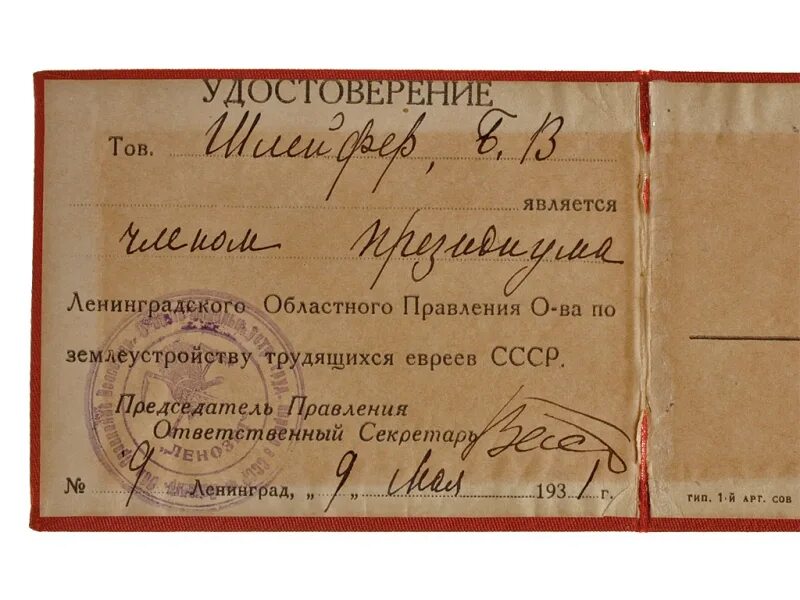 УДОСТОВЕРЕНИЕ
Тов. Шлейфер, Б. В
является
членом президиума
Ленинградского Областного Правления О-ва по
землеустройству трудящихся евреев СССР.
Председатель Правления
Ответственный Секретарь
№ 9 Ленинград, „9„ Мая 1931 г.
„ЛЕНОЗЕТ“
гип. 1-й арт. сов